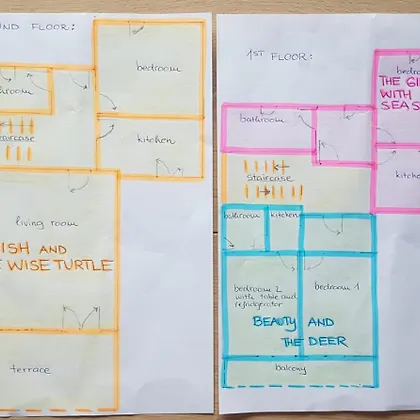 ND FLOOR:
bedroom
hroom
staircase
kitchen
living room
ISH AND
WISE TURTLE
terrace
1ST FLOOR:
bedro
THE GI
WITH
SEAS
bathroom
kitche
staircase
bathroom
kitchen
bedroom 2
with table and
refridgerator
bedroom 1
BEAUTY AND
THE DEER
balcony